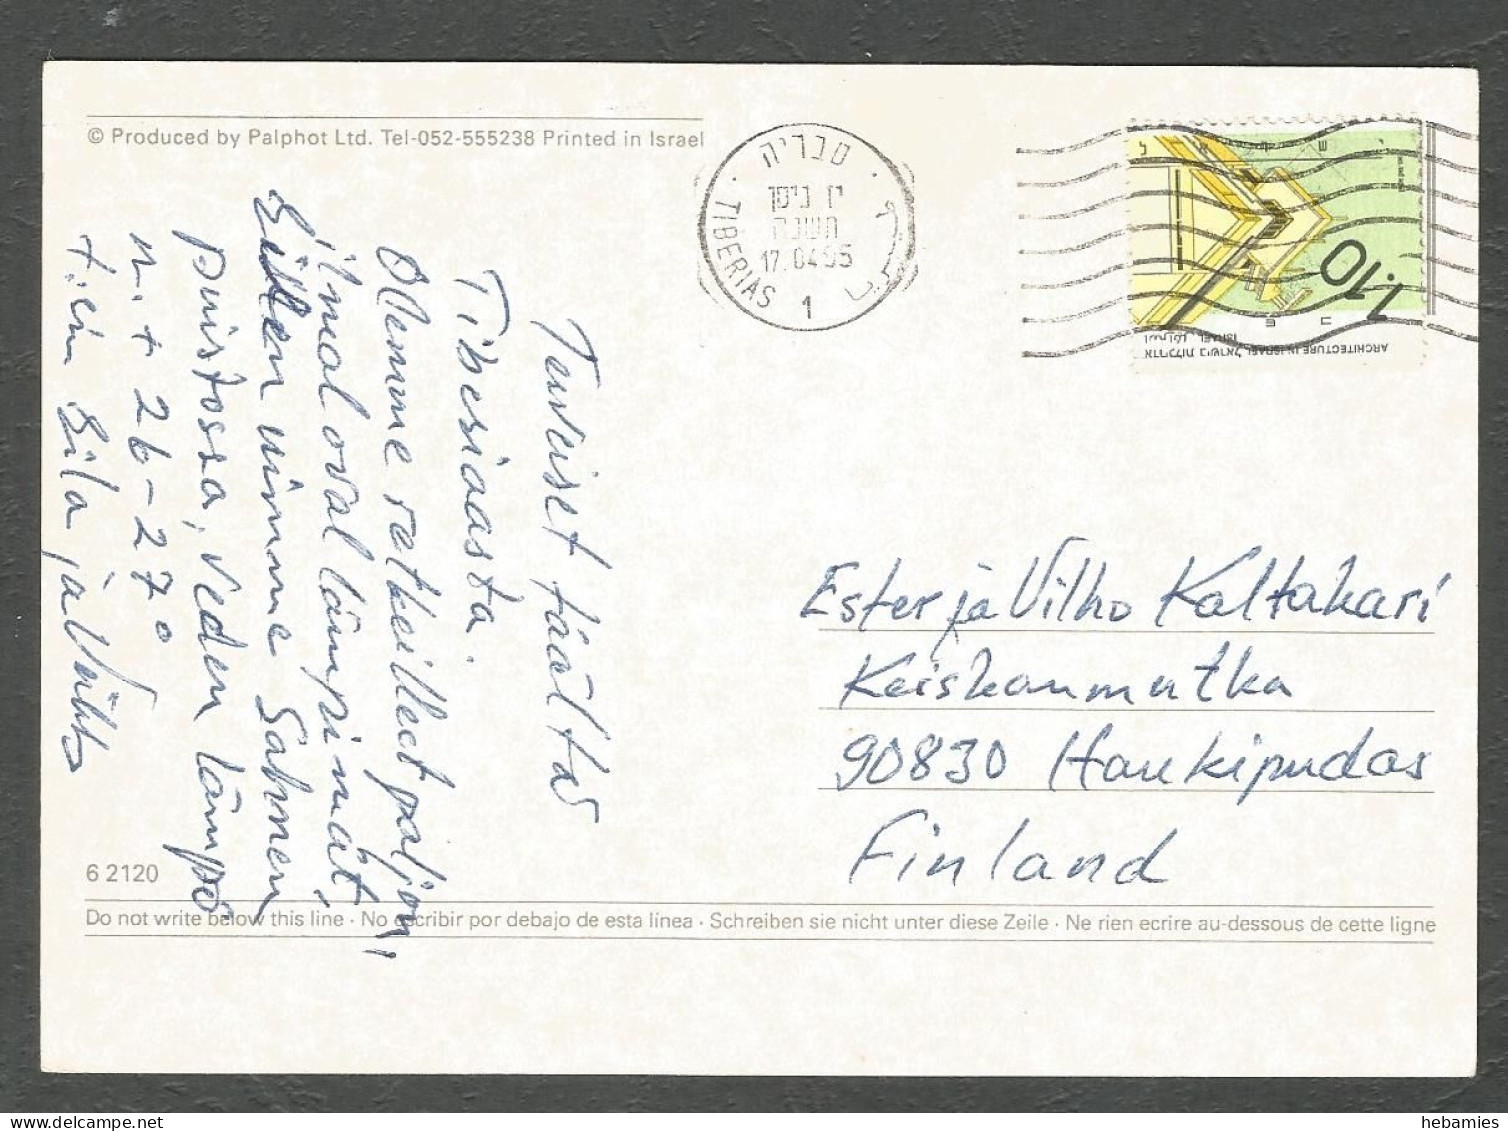 © Produced by Palphot Ltd. Tel-052-555238 Printed in Israel
טבריה
יז ניסן
תשנה
17.0495
TIBERIAS
1
1.10
ARCHITECTURE IN ISRAEL אדריכלות בישראל
ISRAEL
Terveiset täältä
Tiberiaasta.
Olemme retkeilleet paljon,
ilmat ovat lämpimät,
Eilen uimme
puistossa, veden lämpö
n. + 26-27°
t:ein Eila ja Veikko
Ester ja Vilho Kaltakari
Keiskanmutka
90830 Haukipudas
Finland
6 2120
Do not write below this line · No escribir por debajo de esta línea · Schreiben sie nicht unter diese Zeile · Ne rien ecrire au-dessous de cette ligne
hebamies